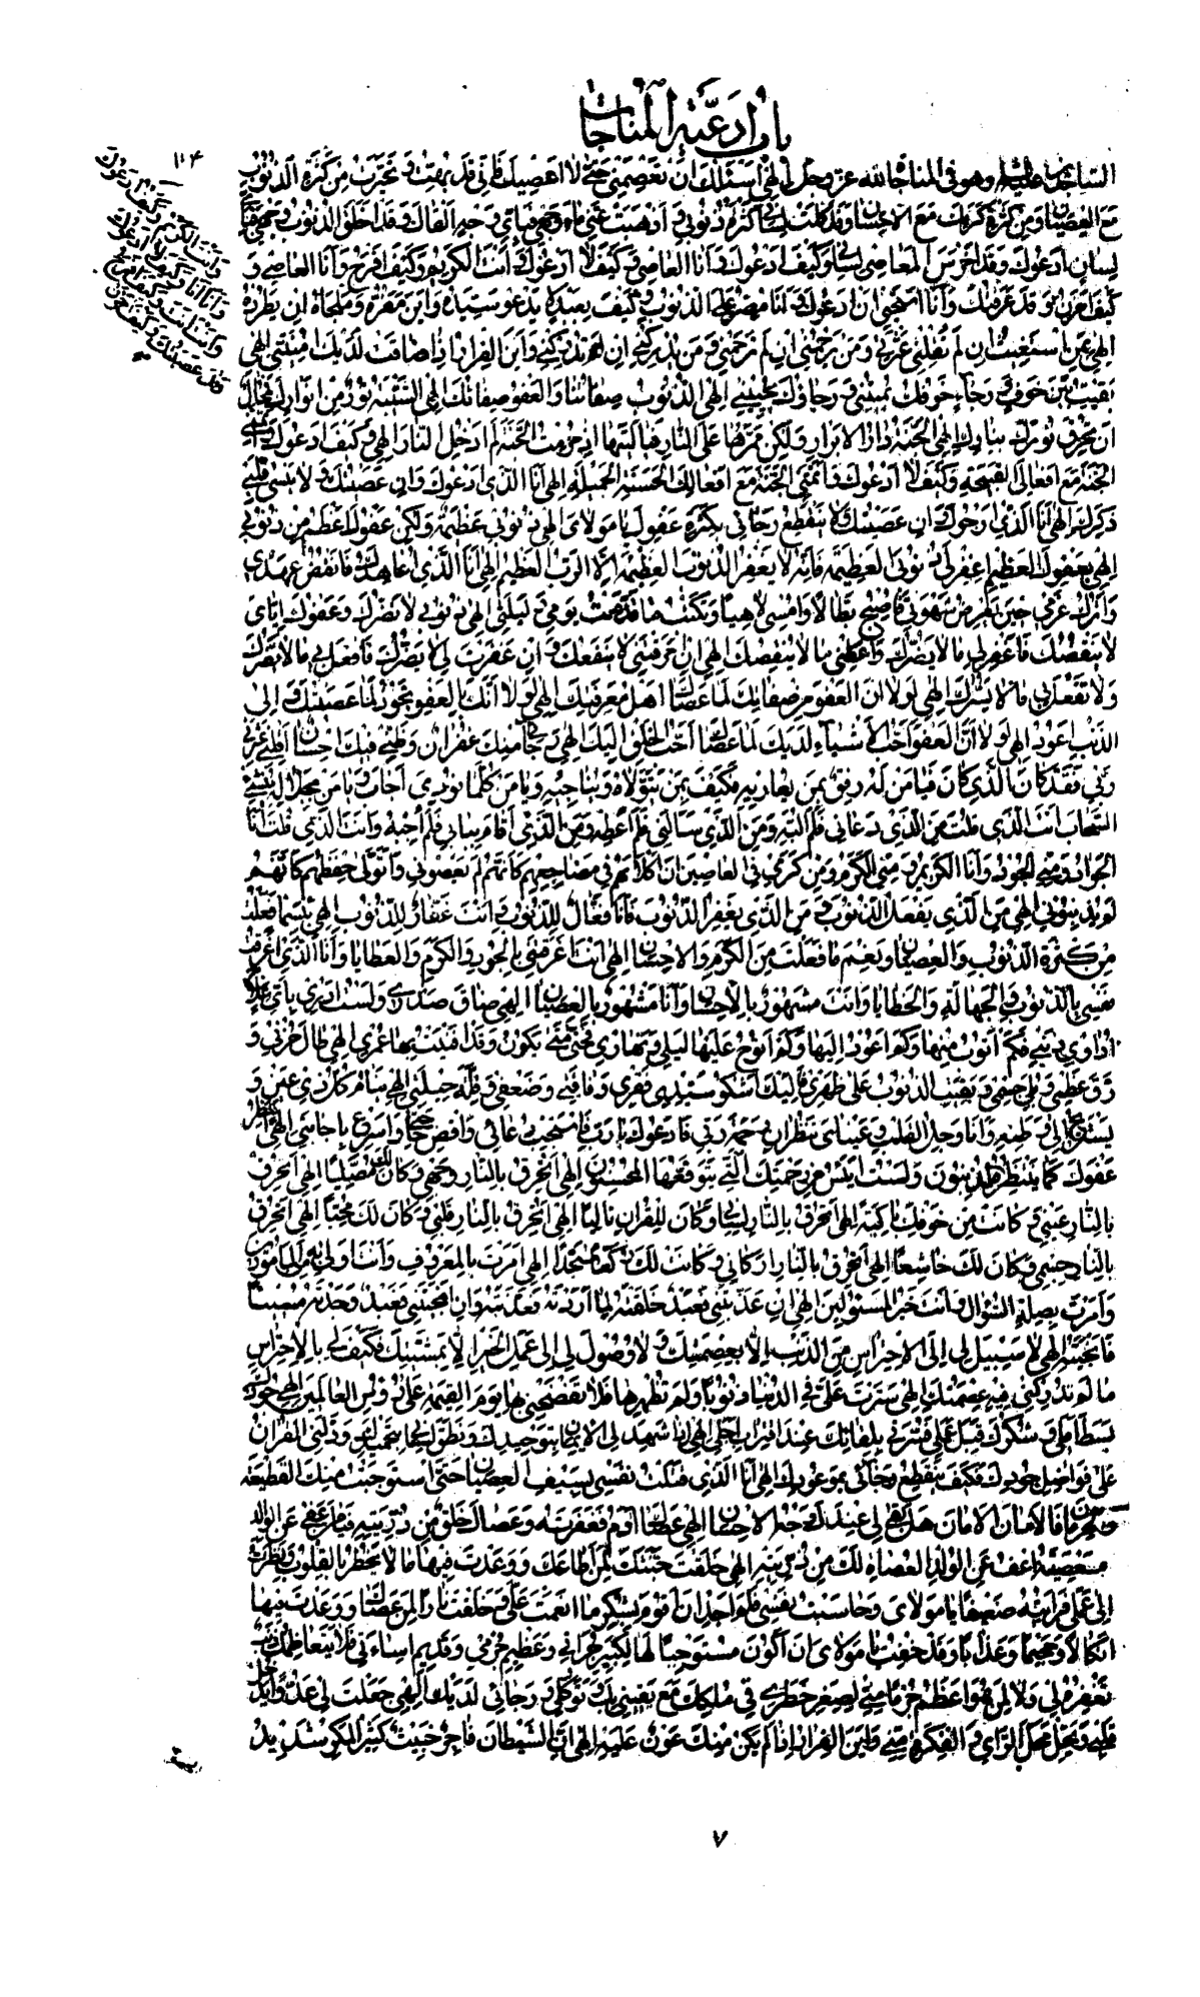 باب ادعية المناجات
١١٤
الساجدين عليه السلام وهو في المناجات لله عز وجل الهي اسئلك ان تعصمني حتى لا اعصيك فاني قد بهت وتحيرت من كثرة الذنوب
مع العصيان ومن كثرة كرمك مع الاحسان وقد كلت لساني كثرة ذنوبي واذهبت عني ماء وجهي فباي وجه القاك وقد اخلق الذنوب وجهي وباي
لسان ادعوك وقد اخرس المعاصي لساني وكيف ادعوك وانا العاصي وكيف لا ادعوك وانت الكريم وكيف افرح وانا العاصي و
كيف احزن وقد عرفتك وانا استحيي ان ادعوك وانا مصر على الذنوب وكيف بعبد لا يدعو سيده واين مفره وملجاه ان يطرده
الهي بمن استغيث ان لم تقلني عثرتي ومن يرحمني ان لم ترحمني ومن يدركني ان لم تدركني واين الفرار اذا ضاقت لديك امنيتي الهي
بقيت بين خوف ورجاء خوفك يميتني ورجاؤك يحييني الهي الذنوب صفاتنا والعفو صفاتك الهي الشيبة نور من انوارك فمحال
ان تحرق نورك بنارك الهي الجنة دار الابرار ولكن ممرها على النار فيا ليتها اذ حرمت الجنة لم ادخل النار الهي وكيف ادعوك واتمنى
الجنة مع افعالي القبيحة وكيف لا ادعوك واتمنى الجنة مع افعالك الحسنة الجميلة الهي انا الذي ادعوك وان عصيتك ولا ينسى قلبي
ذكرك الهي انا الذي ارجوك وان عصيتك لا ينقطع رجائي بكثرة عفوك يا مولاي الهي ذنوبي عظيمة ولكن عفوك اعظم من ذنوبي
الهي بعفوك العظيم اغفر لي ذنوبي العظيمة فانه لا يغفر الذنوب العظيمة الا الرب العظيم الهي انا الذي اعاهدك فانقض عهدي
واترك عزمي حين يعرض شهوتي فاصبح بطالا وامسي لاهيا وتكتب ما قدمت يومي وليلتي الهي ذنوبي لا تضرك وعفوك اياي
لا ينقصك فاغفر لي ما لا يضرك واعطني ما لا ينقصك الهي ان احرقتني لا ينفعك وان غفرت لي لا يضرك فافعل بي ما لا يضرك
ولا تفعل بي ما لا يسرك الهي لولا ان العفو من صفاتك لما عصاك اهل معرفتك الهي لولا انك بالعفو تجود لما عصيتك والى
الذنب اعود الهي لولا ان العفو احب الاشياء لديك لما عصاك احب الخلق اليك الهي رجائي منك غفران وظني فيك احسان اقلني عثرتي
ربي فقد كان الذي كان فيا من له رفق بمن يعاديه فكيف بمن يتولاه ويناجيه ويا من كلما نودي اجاب يا من بجلاله ينشئ
السحاب انت الذي قلت من الذي دعاني فلم البه ومن الذي سالني فلم اعطه ومن الذي اقام ببابي فلم اجبه وانت الذي قلت انا
الجواد ومني الجود وانا الكريم ومني الكرم ومن كرمي في العاصين ان اكلاهم في مضاجعهم كانهم لم يعصوني واتولى حفظهم كانهم
لم يذنبوني الهي من الذي يفعل الذنوب ومن الذي يغفر الذنوب فانا فعال الذنوب وانت غفار للذنوب الهي بئسما فعلت
من كثرة الذنوب والعصيان ونعم ما فعلت من الكرم والاحسان الهي انت اغرقتني بالجود والكرم والعطايا وانا الذي اغرقت
نفسي بالذنوب والجهالة والخطايا وانت مشهور بالاحسان وانا مشهور بالعصيان الهي ضاق صدري ولست ادري باي علاج
اداوي ذنبي فكم اتوب منها وكم اعود اليها وكم انوح عليها ليلي ونهاري فحتى متى يكون وقد افنيت بها عمري الهي طال حزني و
رق عظمي وبلي جسمي وبقيت الذنوب على ظهري فاليك اشكو سيدي فقري وفاقتي وضعفي وقلة حيلتي الهي ينام كل ذي عين و
يستريح الى وطنه وانا وجل القلب وعيناي تنتظران رحمة ربي فادعوك يا رب فاستجب دعائي واقض حاجتي واسرع باجابتي الهي انتظر
عفوك كما ينتظره المذنبون ولست ايئس من رحمتك التي يتوقعها المحسنون الهي اتحرق بالنار وجهي وكان لك مصليا الهي اتحرق
بالنار عيني وكانت من خوفك باكية الهي اتحرق بالنار لساني وكان للقران تاليا الهي اتحرق بالنار قلبي وكان لك محبا الهي اتحرق
بالنار جسمي وكان لك خاشعا الهي اتحرق بالنار اركاني وكانت لك ركعا سجدا الهي امرت بالمعروف وانت اولى به من المامورين
وامرت بصلة السؤال وانت خير المسئولين الهي ان عذبتني فعبد خلقته لما اردته فعذبته وان انجيتني فعبد وجدته مسيئا
فانجيته الهي لا سبيل لي الى الاحتراس من الذنب الا بعصمتك ولا وصول لي الى عمل الخير الا بمشيتك فكيف لي بالاحتراس
ما لم تدركني فيه عصمتك الهي سترت علي في الدنيا ذنوبا ولم تظهرها فلا تفضحني بها يوم القيمة على رؤس العالمين الهي جودك
بسط املي وشكرك قبل عملي فسرني بلقائك عند اقتراب اجلي الهي اذا شهد لي الايمان بتوحيدك ونطق لساني بتحميدك ودلني القران
على فواضل جودك فكيف ينقطع رجائي بموعودك الهي انا الذي قتلت نفسي بسيف العصيان حتى استوجبت منك القطيعة
والحرمان فالامان الامان هل بقي لي عندك وجه الاحسان الهي عصاك ادم فغفرته وعصاك خلق من ذريته فيا من عفى عن الوالد
معصيته اعف عن الولد العصاة لك من ذريته الهي خلقت جنتك لمن اطاعك ووعدت فيها ما لا يخطر بالقلوب ونظرت
الى عملي فرايته ضعيفا يا مولاي وحاسبت نفسي فلم اجد ان اقوم بشكر ما انعمت علي وخلقت نارا لمن عصاك ووعدت فيها
انكالا وجحيما وعذابا وقد خفت يا مولاي ان اكون مستوجبا لها لكبير جراتي وعظيم جرمي وقديم اساءتي فلا يتعاظمك ذنب
تغفره لي ولا لمن هو اعظم جرما مني لصغر خطري في ملكك مع يقيني بك وتوكلي ورجائي لديك الهي جعلت لي عدوا يدخل
قلبي ويحل محل الراي والفكرة مني واين الفرار اذا لم يكن منك عون عليه الهي ان الشيطان فاجر خبيث كثير المكر شديد
وانت الكريم وكيف لا ادعوك
٧